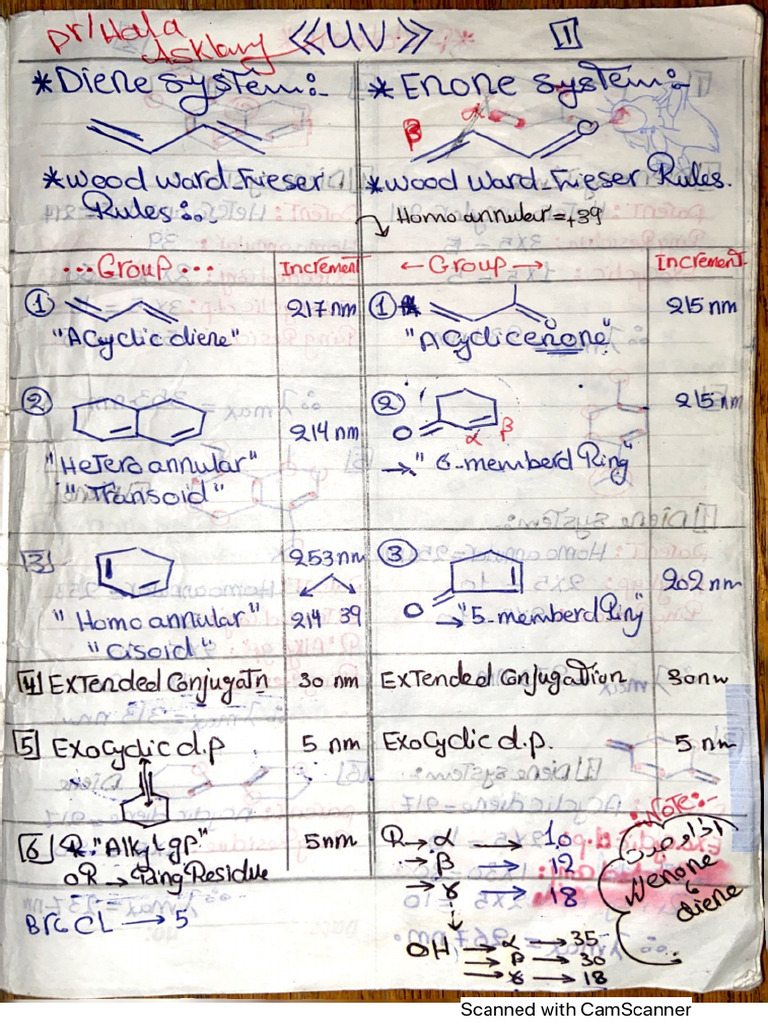 Dr/Hala Asklany
<<UV>>
1
* Diene system:-
* Wood ward-Fieser
Rules:..
...Group...
Increment
① 217 nm
"Acyclic diene"
②
214 nm
"Hetero annular"
"Transoid"
[3]
253nm
214 39
"Homo annular"
"Cisoid"
[4] Extended Conjugatn 30 nm
[5] Exocyclic d.p 5 nm
[6] R "Alkyl gp" 5nm
oR → Ring Residue
Br & CL → 5
* Enone system:-
β α O
* Wood ward-Fieser Rules.
Homo annular = +39
← Group →
Increment
① 215 nm
"Acyclic enone"
②
215 nm
O α β
→ "6-memberd Ring"
③
202 nm
O
→ "5-memberd Ring"
Extended Conjugation 30nm
Exocyclic d.p. 5 nm
R → α → 10
→ β → 12
→ γ → 18
OH → α → 35
→ β → 30
→ γ → 18
Note:-
enone
diene
Scanned with CamScanner